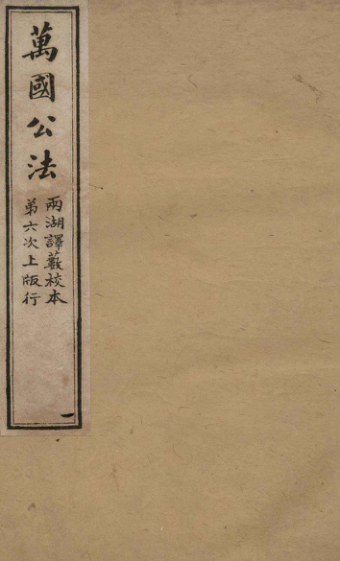 萬國公法
兩湖譯藪校本
第六次上版行
一